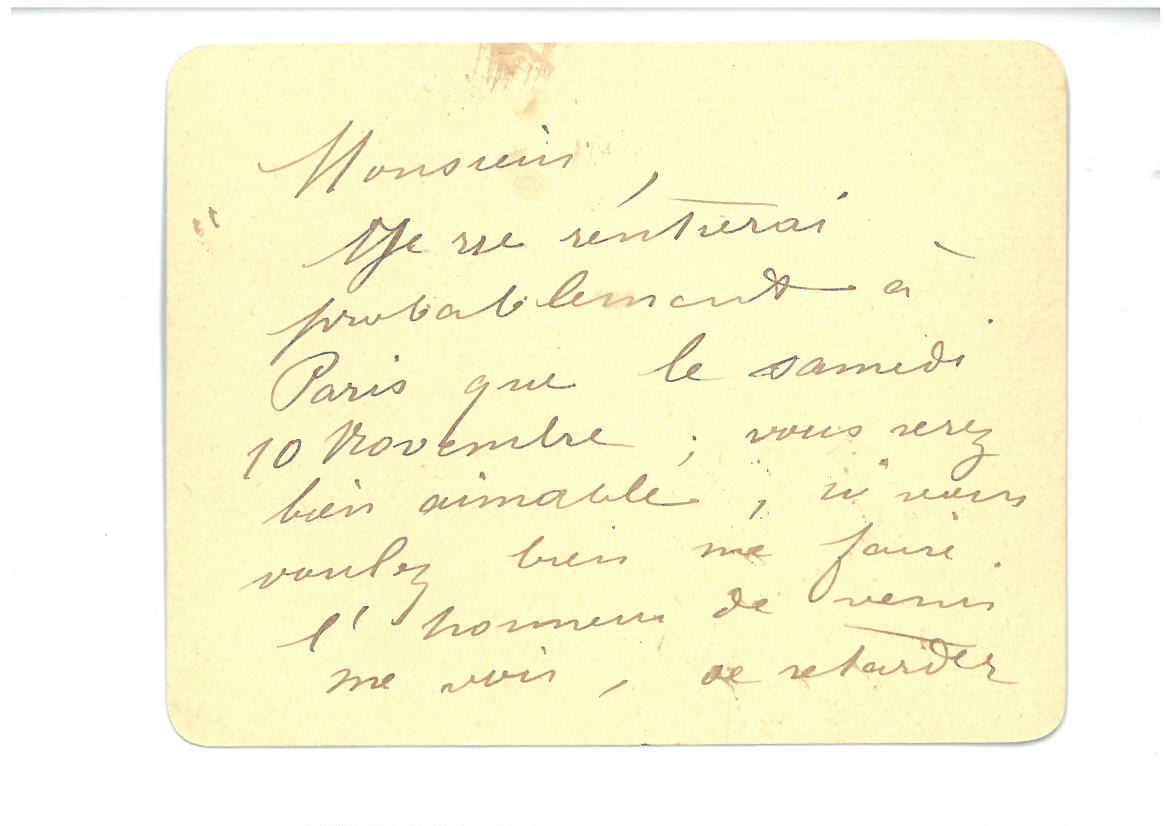 Monsieur,
Je ne rentrerai
probablement à
Paris que le samedi
10 Novembre ; vous serez
bien aimable, si vous
voulez bien me faire
l'honneur de venir
me voir, de retarder